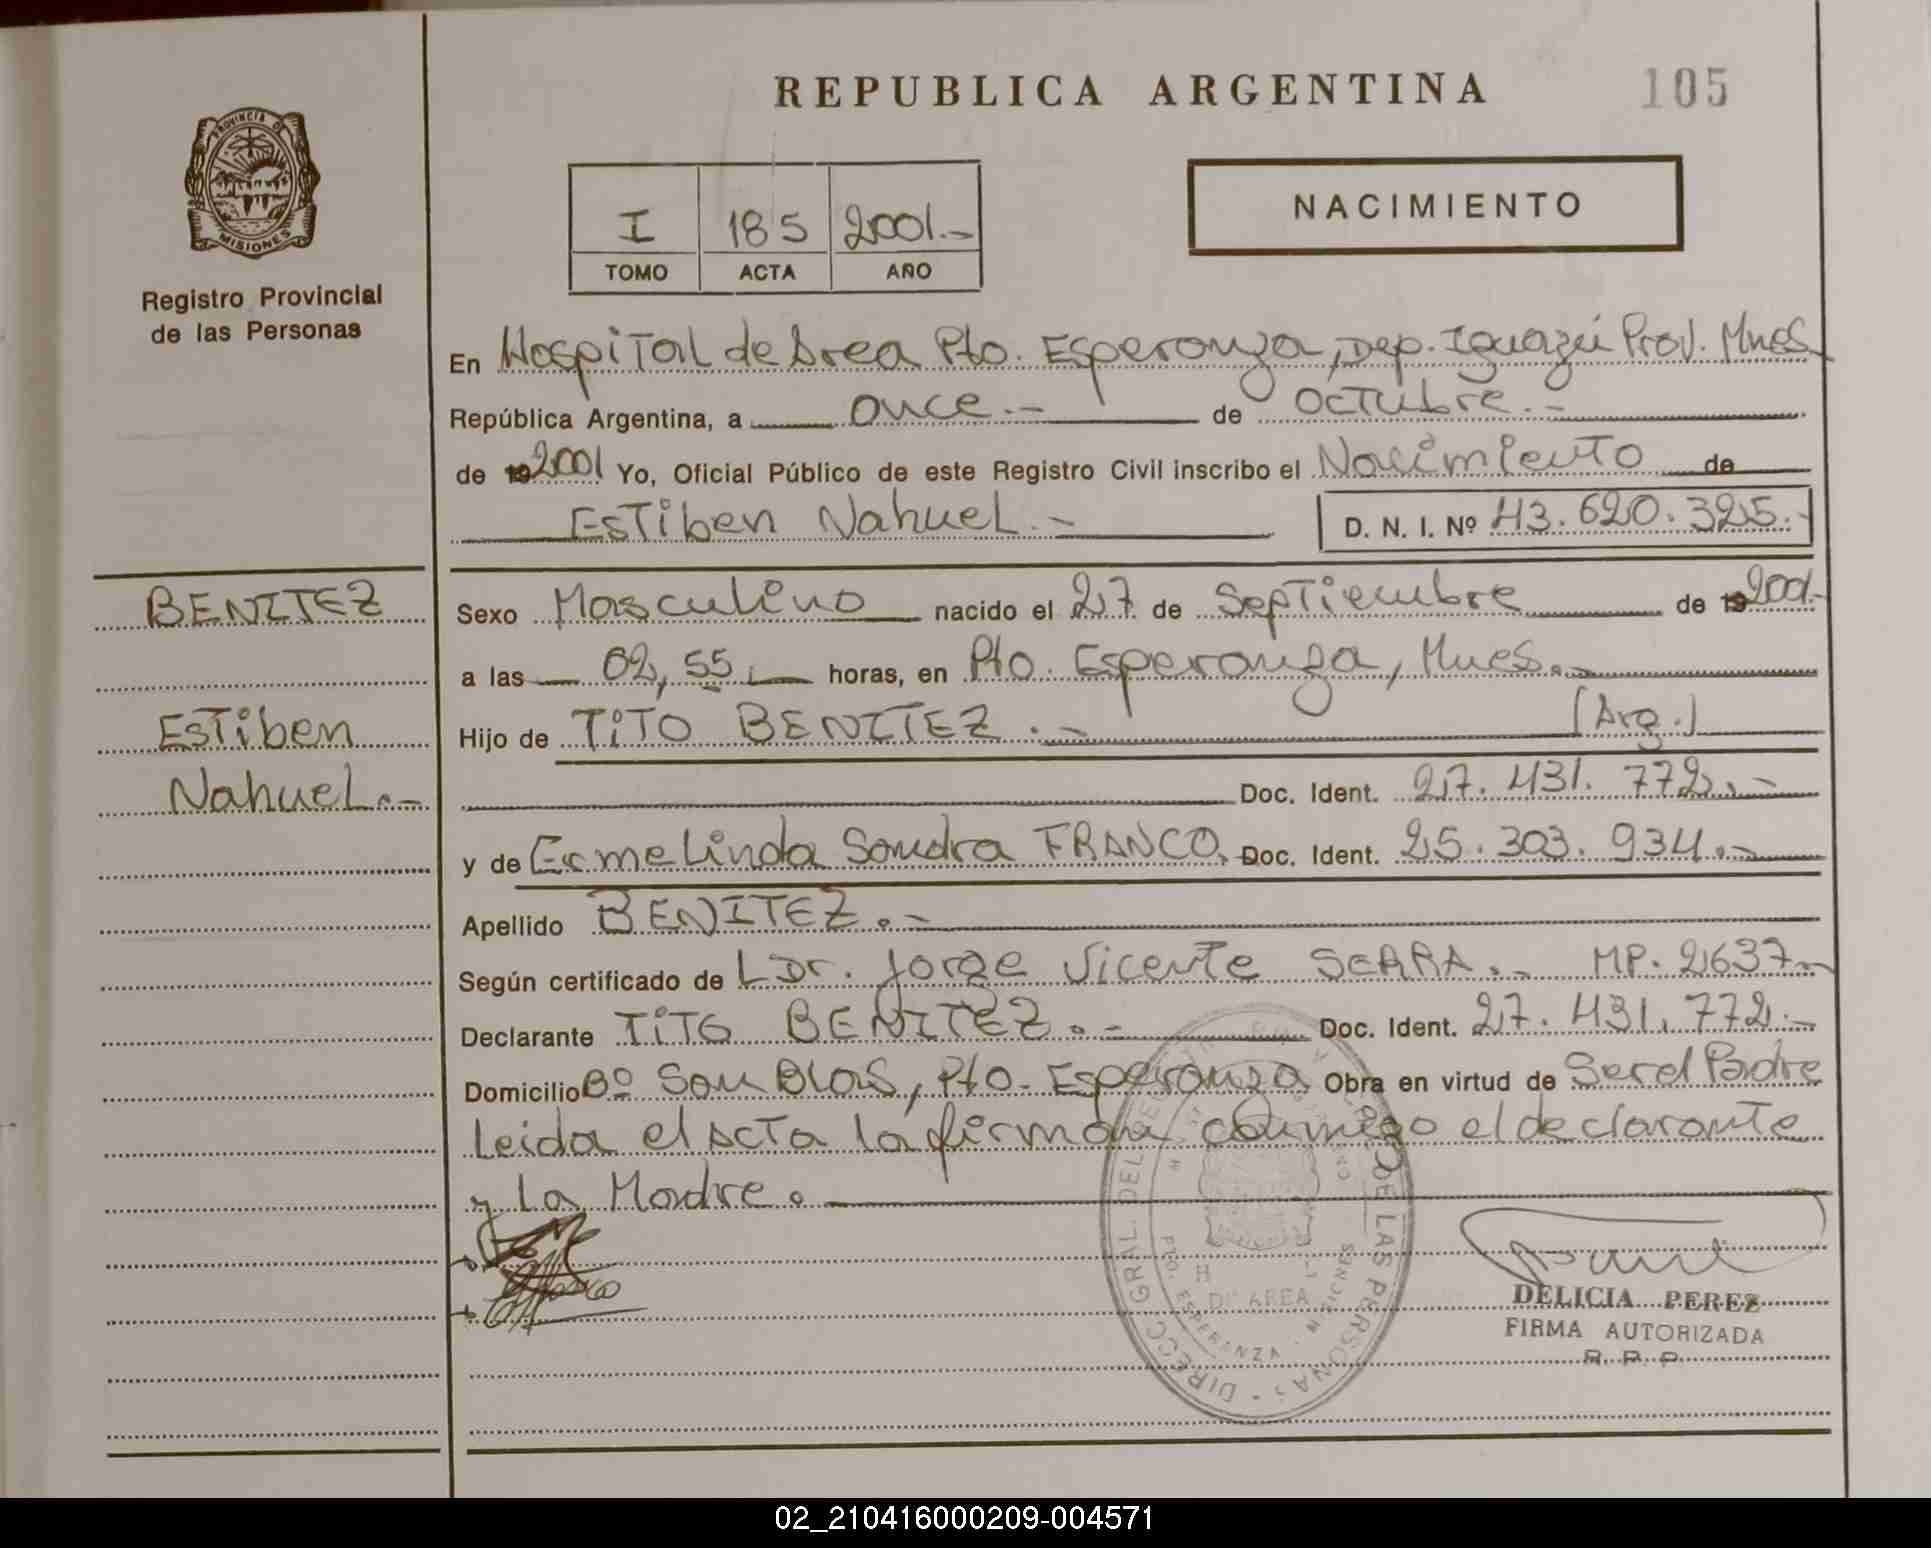 REPUBLICA ARGENTINA
105
PROVINCIA DE
MISIONES
Registro Provincial
de las Personas
I 185 2001.-
TOMO ACTA AÑO
NACIMIENTO
En Hospital de Area Pto. Esperanza, Dep. Iguazú Prov. Mnes
República Argentina, a once.- de octubre.-
de 192001 Yo, Oficial Público de este Registro Civil inscribo el Nacimiento de
Estiben Nahuel.- D. N. I. Nº 43.620.325.-
BENITEZ
Estiben
Nahuel.-
Sexo Masculino nacido el 27 de Septiembre de 192001.-
a las 02,55 horas, en Pto. Esperanza, Mnes.-
Hijo de TiTO BENITEZ.- (Arg.)
Doc. Ident. 27.431.772.-
y de Ermelinda Sandra FRANCO. Doc. Ident. 25.303.934.-
Apellido BENITEZ.-
Según certificado de Dr. Jorge Vicente SERRA.- MP. 2637-
Declarante TiTO BENITEZ.- Doc. Ident. 27.431.772.-
Domicilio Bº San Blas, Pto. Esperanza Obra en virtud de Ser el Padre
Leida el acta la firman conmigo el declarante
y La Madre.
DIRECC. GRAL. DEL DE LAS PERSONAS
DE AREA
PTO. ESPERANZA - MISIONES
DELICIA PEREZ
FIRMA AUTORIZADA
R. P. P.
02_210416000209-004571